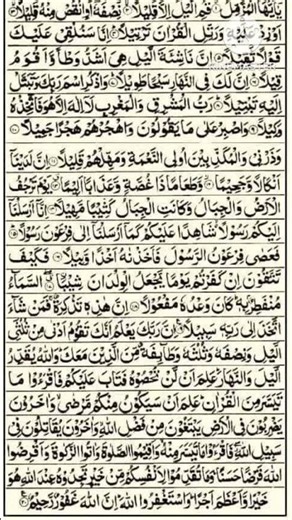 يٰۤاَيُّهَا الْمُزَّمِّلُ ۙ قُمِ الَّيْلَ اِلَّا قَلِيْلًا ۙ نِّصْفَهٗۤ اَوِ انْقُصْ مِنْهُ قَلِيْلًا ۙ
اَوْ زِدْ عَلَيْهِ وَرَتِّلِ الْقُرْاٰنَ تَرْتِيْلًا ؕ اِنَّا سَنُلْقِيْ عَلَيْكَ
قَوْلًا ثَقِيْلًا اِنَّ نَاشِئَةَ الَّيْلِ هِيَ اَشَدُّ وَطْاً وَّاَقْوَمُ
قِيْلًا ؕ اِنَّ لَكَ فِي النَّهَارِ سَبْحًا طَوِيْلًا ؕ وَاذْكُرِ اسْمَ رَبِّكَ وَتَبَتَّلْ
اِلَيْهِ تَبْتِيْلًا ؕ رَبُّ الْمَشْرِقِ وَالْمَغْرِبِ لَاۤ اِلٰهَ اِلَّا هُوَ فَاتَّخِذْهُ
وَكِيْلًا وَاصْبِرْ عَلٰى مَا يَقُوْلُوْنَ وَاهْجُرْهُمْ هَجْرًا جَمِيْلًا
وَذَرْنِيْ وَالْمُكَذِّبِيْنَ اُولِي النَّعْمَةِ وَمَهِّلْهُمْ قَلِيْلًا اِنَّ لَدَيْنَاۤ
اَنْكَالًا وَّجَحِيْمًا ۙ وَّطَعَامًا ذَا غُصَّةٍ وَّعَذَابًا اَلِيْمًا يَوْمَ تَرْجُفُ
الْاَرْضُ وَالْجِبَالُ وَكَانَتِ الْجِبَالُ كَثِيْبًا مَّهِيْلًا اِنَّاۤ اَرْسَلْنَاۤ
اِلَيْكُمْ رَسُوْلًا شَاهِدًا عَلَيْكُمْ كَمَاۤ اَرْسَلْنَاۤ اِلٰى فِرْعَوْنَ رَسُوْلًا ؕ
فَعَصٰى فِرْعَوْنُ الرَّسُوْلَ فَاَخَذْنٰهُ اَخْذًا وَّبِيْلًا فَكَيْفَ
تَتَّقُوْنَ اِنْ كَفَرْتُمْ يَوْمًا يَّجْعَلُ الْوِلْدَانَ شِيْبًا السَّمَآءُ
مُنْفَطِرٌۢ بِهٖ ؕ كَانَ وَعْدُهٗ مَفْعُوْلًا اِنَّ هٰذِهٖ تَذْكِرَةٌ ۚ فَمَنْ شَآءَ
اتَّخَذَ اِلٰى رَبِّهٖ سَبِيْلًا اِنَّ رَبَّكَ يَعْلَمُ اَنَّكَ تَقُوْمُ اَدْنٰى مِنْ ثُلُثَيِ
الَّيْلِ وَنِصْفَهٗ وَثُلُثَهٗ وَطَآئِفَةٌ مِّنَ الَّذِيْنَ مَعَكَ ؕ وَاللّٰهُ يُقَدِّرُ
الَّيْلَ وَالنَّهَارَ ؕ عَلِمَ اَنْ لَّنْ تُحْصُوْهُ فَتَابَ عَلَيْكُمْ فَاقْرَءُوْا مَا
تَيَسَّرَ مِنَ الْقُرْاٰنِ ؕ عَلِمَ اَنْ سَيَكُوْنُ مِنْكُمْ مَّرْضٰى ۙ وَاٰخَرُوْنَ
يَضْرِبُوْنَ فِي الْاَرْضِ يَبْتَغُوْنَ مِنْ فَضْلِ اللّٰهِ ۙ وَاٰخَرُوْنَ يُقَاتِلُوْنَ فِيْ
سَبِيْلِ اللّٰهِ ۖ فَاقْرَءُوْا مَا تَيَسَّرَ مِنْهُ ۙ وَاَقِيْمُوا الصَّلٰوةَ وَاٰتُوا الزَّكٰوةَ وَاَقْرِضُوا
اللّٰهَ قَرْضًا حَسَنًا ؕ وَمَا تُقَدِّمُوْا لِاَنْفُسِكُمْ مِّنْ خَيْرٍ تَجِدُوْهُ عِنْدَ اللّٰهِ هُوَ
خَيْرًا وَّاَعْظَمَ اَجْرًا ؕ وَاسْتَغْفِرُوا اللّٰهَ ؕ اِنَّ اللّٰهَ غَفُوْرٌ رَّحِيْمٌ